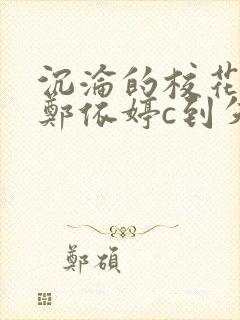 沉淪的校花
鄭依婷c到
鄭碩